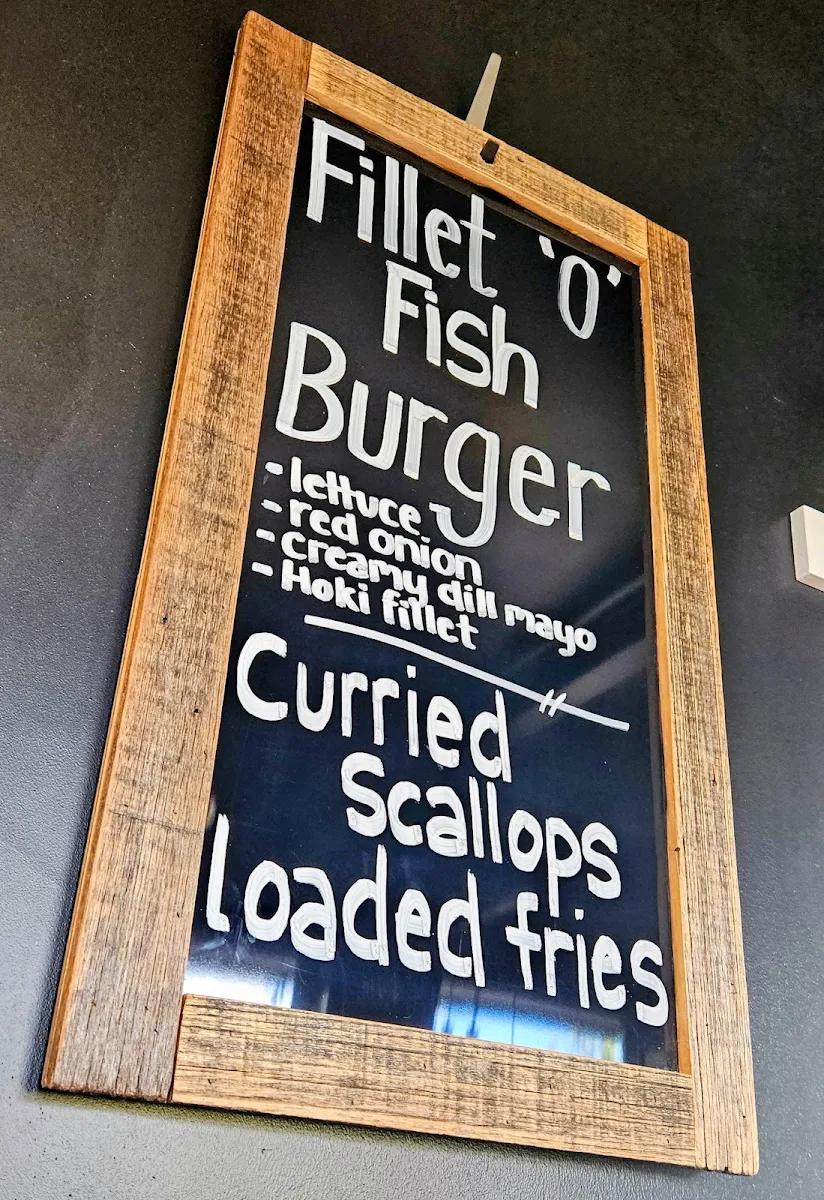 Fillet 'O'
Fish
Burger
- lettuce
- red onion
- creamy dill mayo
- Hoki fillet
Curried
Scallops
loaded fries